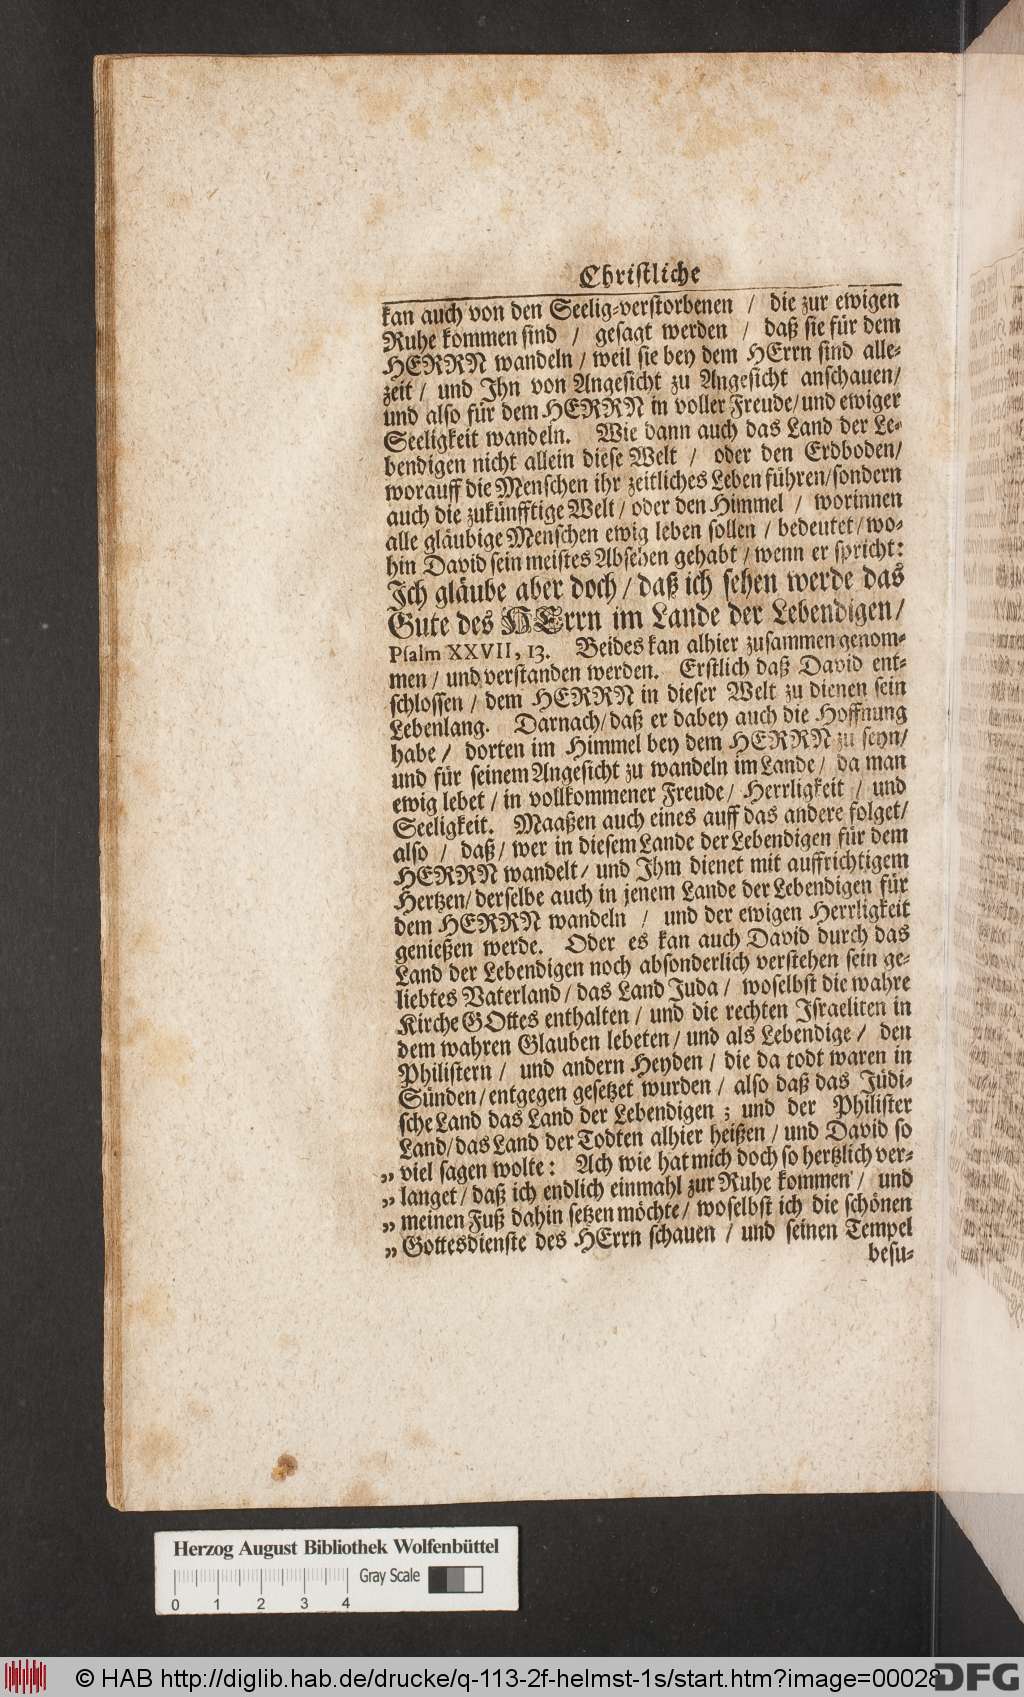 Christliche
kan auch von den Seelig-verstorbenen / die zur ewigen
Ruhe kommen sind / gesagt werden / daß sie für dem
HERRN wandeln / weil sie bey dem HErrn sind alle-
zeit / und Ihn von Angesicht zu Angesicht anschauen/
und also für dem HERRN in voller Freude/ und ewiger
Seeligkeit wandeln. Wie dann auch das Land der Le-
bendigen nicht allein diese Welt / oder den Erdboden/
worauff die Menschen ihr zeitliches Leben führen/sondern
auch die zukünfftige Welt/ oder den Himmel / worinnen
alle gläubige Menschen ewig leben sollen / bedeutet/ wo-
hin David sein meistes Absehen gehabt / wenn er spricht:
Ich gläube aber doch / daß ich sehen werde das
Gute des HErrn im Lande der Lebendigen/
Psalm XXVII, 13. Beides kan alhier zusammen genom-
men / und verstanden werden. Erstlich daß David ent-
schlossen / dem HERRN in dieser Welt zu dienen sein
Lebenlang. Darnach/ daß er dabey auch die Hoffnung
habe / dorten im Himmel bey dem HERRN zu seyn/
und für seinem Angesicht zu wandeln im Lande / da man
ewig lebet / in vollkommener Freude / Herrligkeit / und
Seeligkeit. Maaßen auch eines auff das andere folget/
also / daß / wer in diesem Lande der Lebendigen für dem
HERRN wandelt / und Ihm dienet mit auffrichtigem
Hertzen/ derselbe auch in jenem Lande der Lebendigen für
dem HERRN wandeln / und der ewigen Herrligkeit
genießen werde. Oder es kan auch David durch das
Land der Lebendigen noch absonderlich verstehen sein ge-
liebtes Vaterland / das Land Juda / woselbst die wahre
Kirche GOttes enthalten / und die rechten Israeliten in
dem wahren Glauben lebeten / und als Lebendige / den
Philistern / und andern Heyden / die da todt waren in
Sünden/ entgegen gesetzet wurden / also daß das Jüdi-
sche Land das Land der Lebendigen ; und der Philister
Land/ das Land der Todten alhier heißen / und David so
„ viel sagen wolte: Ach wie hat mich doch so hertzlich ver-
„ langet / daß ich endlich einmahl zur Ruhe kommen / und
„ meinen Fuß dahin setzen möchte/ woselbst ich die schönen
„ Gottesdienste des HErrn schauen / und seinen Tempel
besu-
Herzog August Bibliothek Wolfenbüttel
Gray Scale
0 1 2 3 4
© HAB http://diglib.hab.de/drucke/q-113-2f-helmst-1s/start.htm?image=00028
DFG